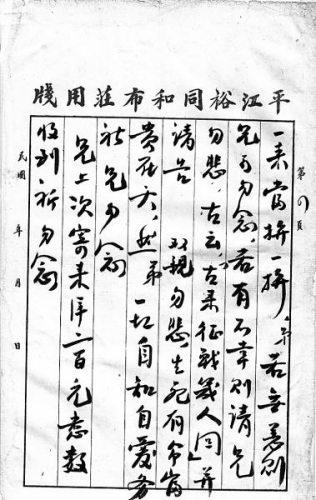 平江裕同和布莊用牋
第 頁
一来當拚一拚，弟若無恙則
兄可勿念，若有不幸則請兄
勿悲，古云「古来征戰幾人回」并
請告 双親勿悲，生死有命富
貴在天，然弟一切自知自愛，務
祈兄勿念
兄上次寄来洋二百元悉数
收到，祈勿念
民國 年 月 日